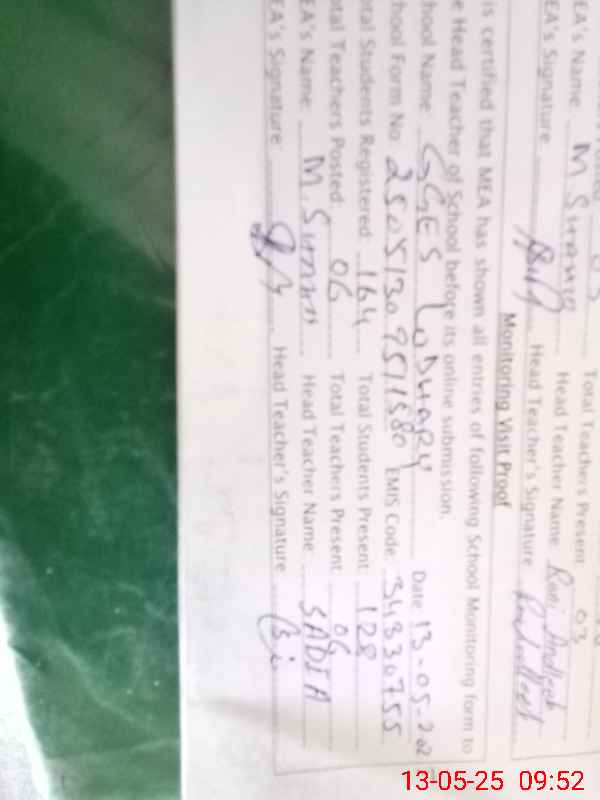 EA's Name M. Su Head Teacher Name Rani
EA's Signature Head Teacher's Signature
Monitoring Visit Proof
is certified that MEA has shown all entries of following School Monitoring form to
e Head Teacher of School before its online submission.
hool Name: GGES LODHARY Date 13-05-202
hool Form No: EMIS Code: 34330755
otal Students Registered: 164 Total Students Present: 128
otal Teachers Posted: 06 Total Teachers Present: 06
EA's Name: M. Head Teacher Name: SADIA
EA's Signature: Head Teacher's Signature:
13-05-25 09:52